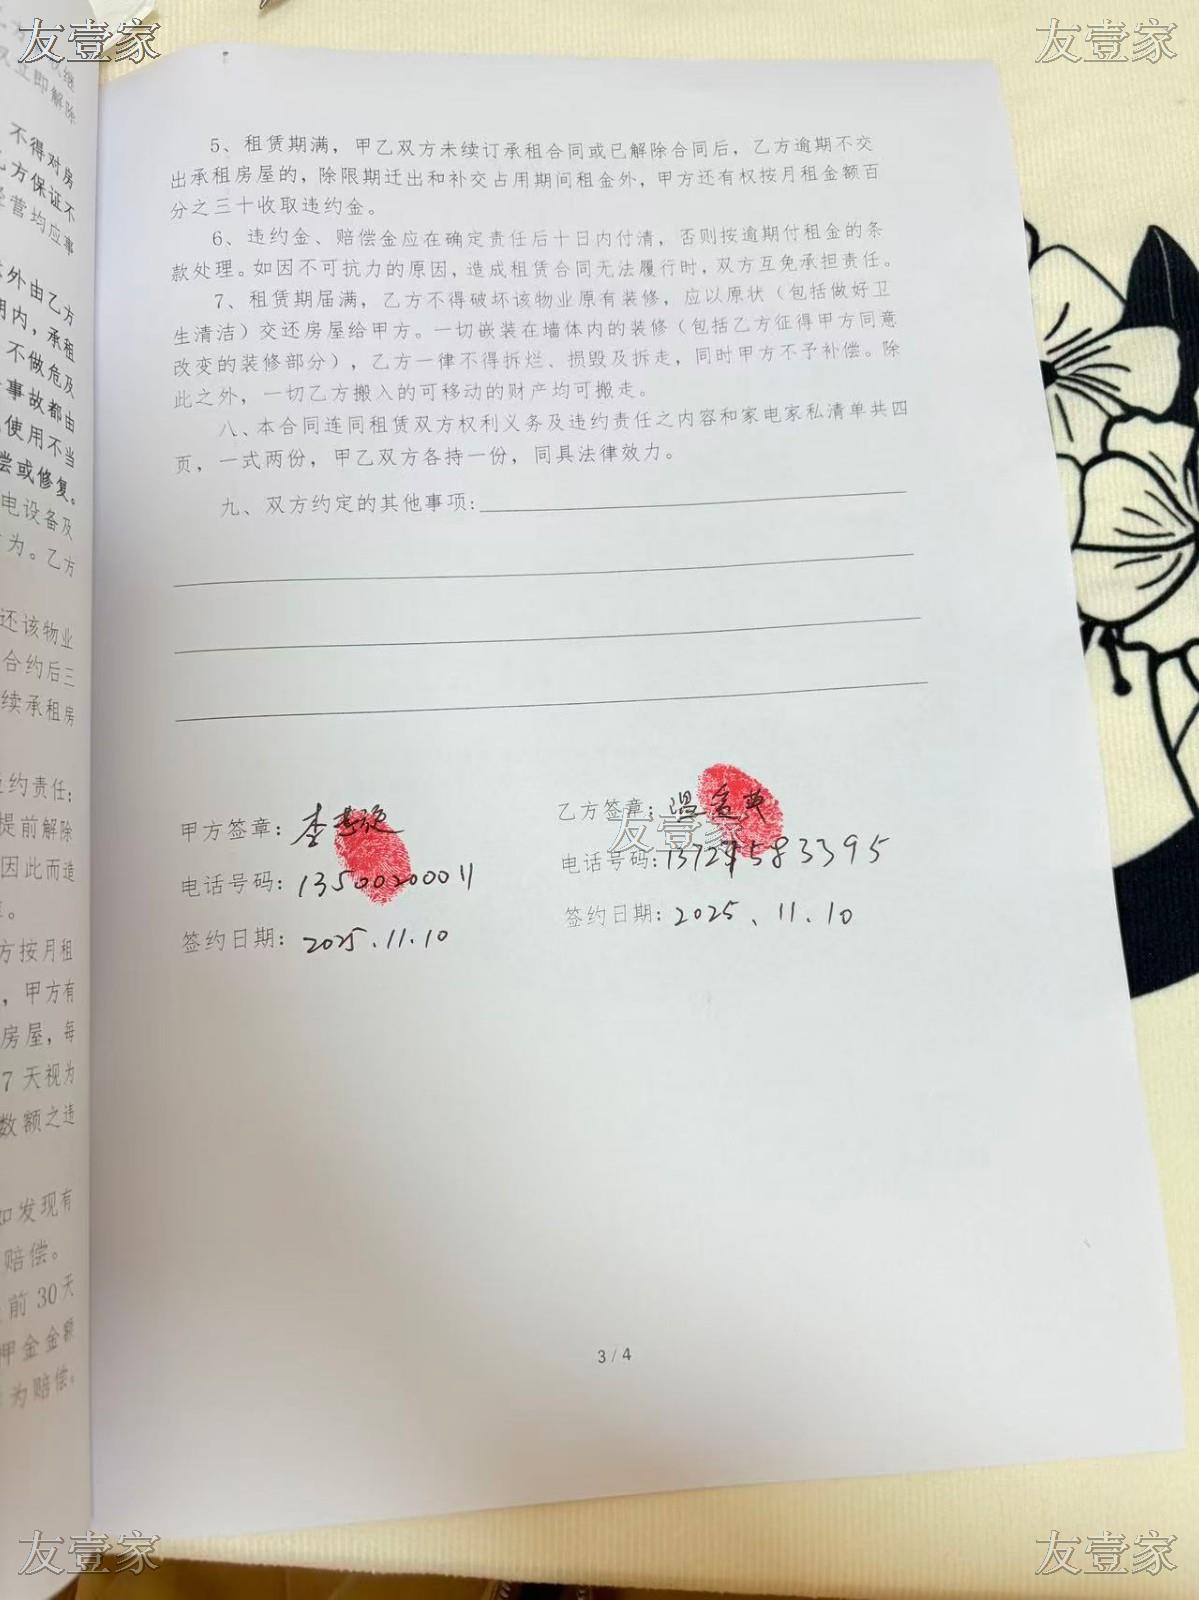 友壹家
友壹家
双继
又立即解除
不得对房
乙方保证不
经营均应事
外由乙方
用内，承租
不做危及
事故都由
使用不当
偿或修复。
电设备及
为。乙方
还该物业
合约后三
续承租房
违约责任：
提前解除
因此而造
方按月租
，甲方有
房屋，每
7天视为
数额之违
如发现有
赔偿。
前30天
押金金额
为赔偿。
5、租赁期满，甲乙双方未续订承租合同或已解除合同后，乙方逾期不交
出承租房屋的，除限期迁出和补交占用期间租金外，甲方还有权按月租金额百
分之三十收取违约金。
6、违约金、赔偿金应在确定责任后十日内付清，否则按逾期付租金的条
款处理。如因不可抗力的原因，造成租赁合同无法履行时，双方互免承担责任。
7、租赁期届满，乙方不得破坏该物业原有装修，应以原状（包括做好卫
生清洁）交还房屋给甲方。一切嵌装在墙体内的装修（包括乙方征得甲方同意
改变的装修部分），乙方一律不得拆烂、损毁及拆走，同时甲方不予补偿。除
此之外，一切乙方搬入的可移动的财产均可搬走。
八、本合同连同租赁双方权利义务及违约责任之内容和家电家私清单共四
页，一式两份，甲乙双方各持一份，同具法律效力。
九、双方约定的其他事项：
甲方签章：李
电话号码：13500200011
签约日期：2025.11.10
乙方签章：温
友壹家
电话号码：583395
签约日期：2025、11.10
3/4
友壹家
友壹家